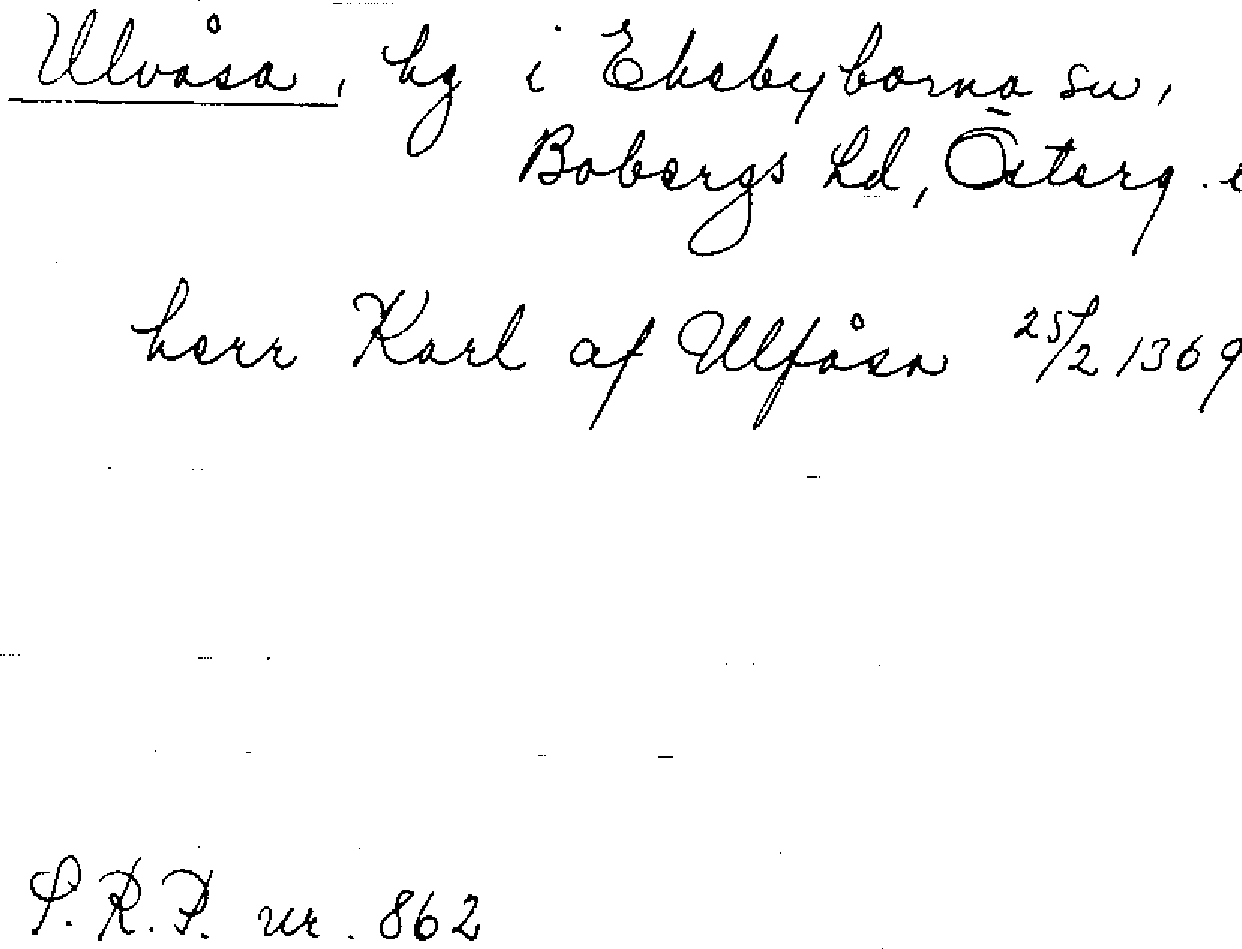 Ulvåsa, hg i Ekebyborna sn,
Bobergs hd, Österg.
herr Karl af Ulfåsa 25/2 1369
S.R.P. nr. 862